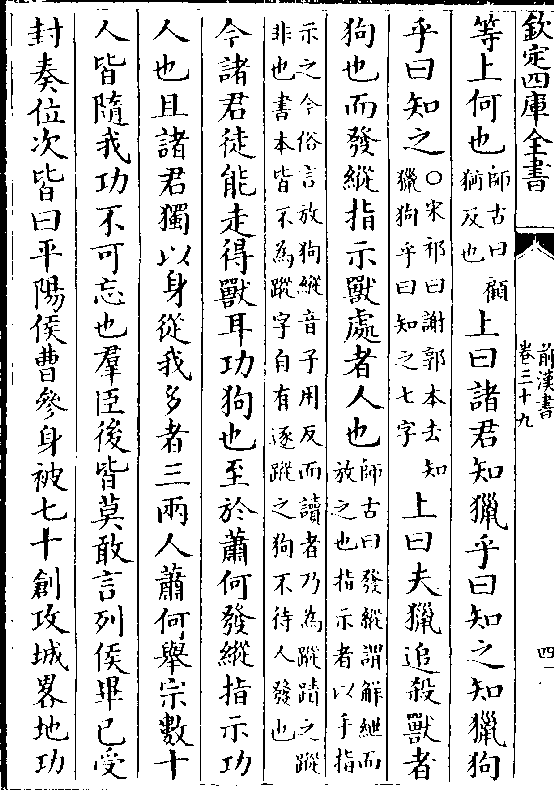 欽定四庫全書
前漢書
卷三十九
四
等上何也師古曰顧猶反也上曰諸君知獵乎曰知之知獵狗
乎曰知之○宋祁曰謝郭本去知獵狗乎曰知之七字上曰夫獵追殺獸者
狗也而發縱指示獸處者人也師古曰發縱謂解紲而放之也指示者以手指
示之今俗言放狗縱音子用反而讀者乃為蹤蹟之蹤非也書本皆不為蹤字自有逐蹤之狗不待人發也
今諸君徒能走得獸耳功狗也至於蕭何發縱指示功
人也且諸君獨以身從我多者三兩人蕭何舉宗數十
人皆隨我功不可忘也羣臣後皆莫敢言列侯畢已受
封奏位次皆曰平陽侯曹參身被七十創攻城畧地功